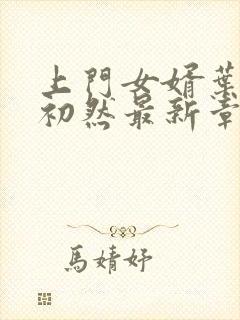 上門女婿葉
初然最新章
馬婧妤